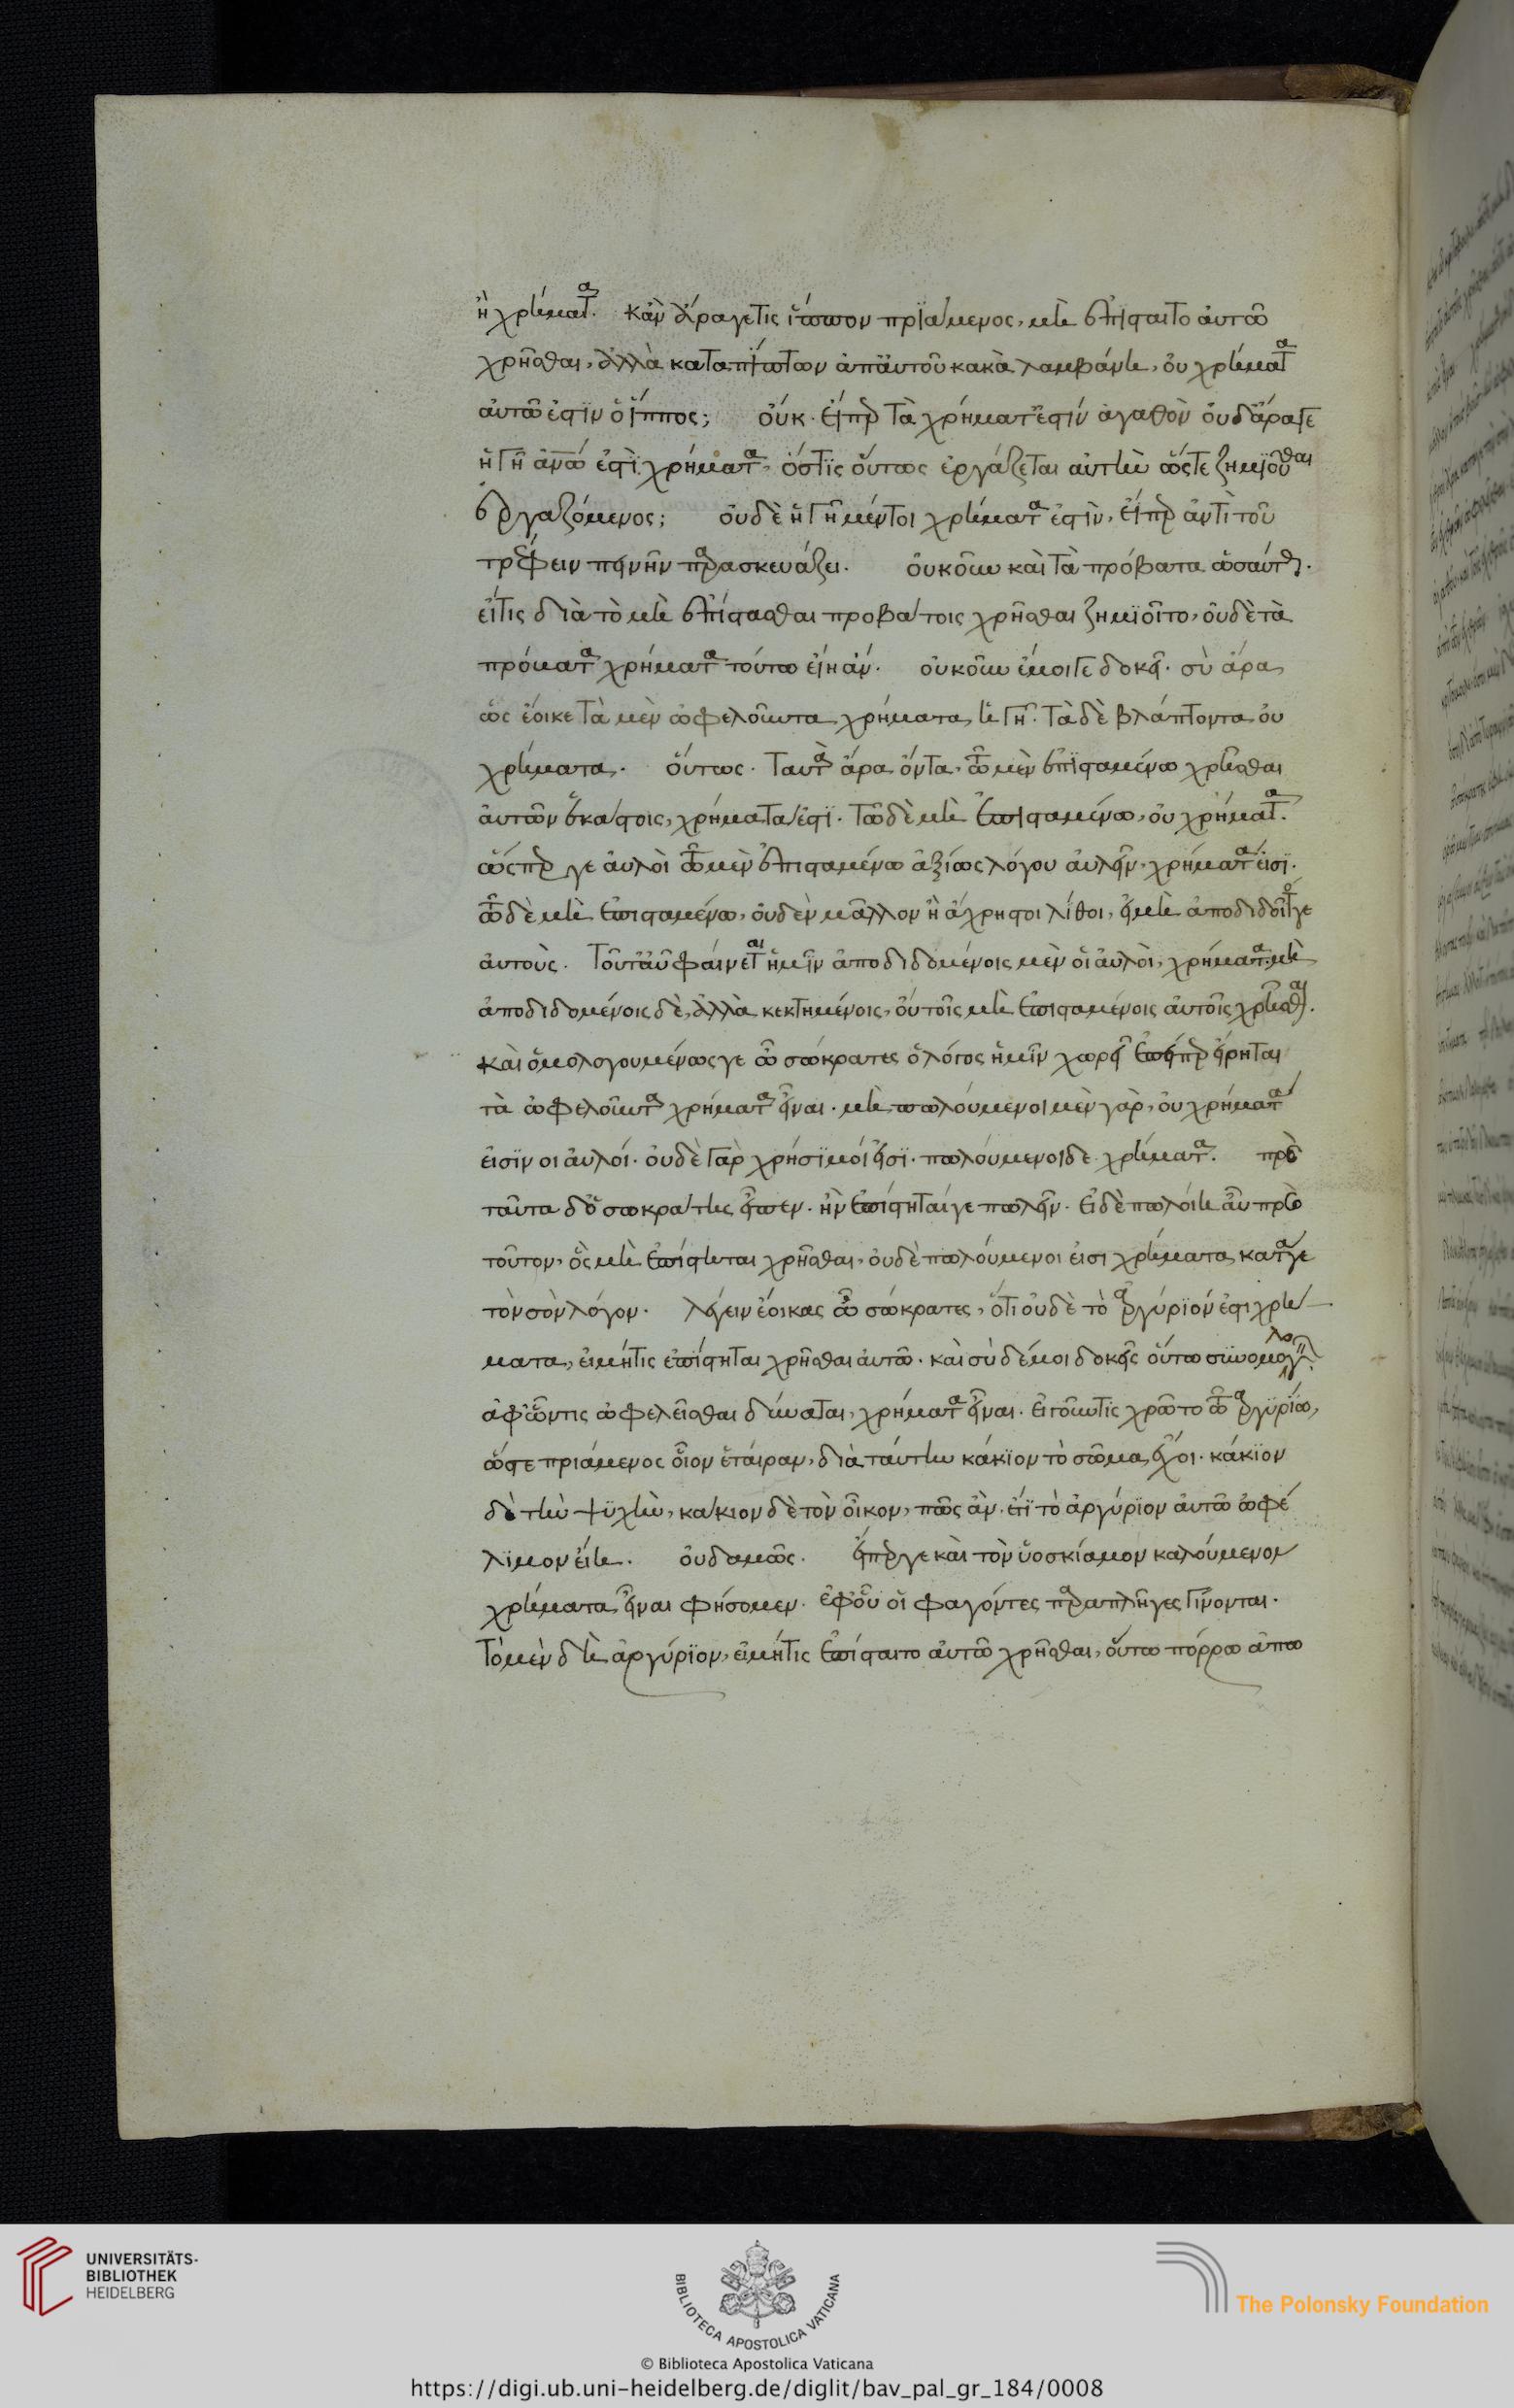 ἢ χρήματα. κἂν ἄρα γέ τις ἵππον πριάμενος, μὴ ἐπίσταιτο αὐτῶ
χρῆσθαι, ἀλλὰ καταπίπτων ἀπ' αὐτοῦ κακὰ λαμβάνη, οὐ χρήματα
αὐτῶ ἐστὶν ὁ ἵππος; οὔκ. εἴπερ τὰ χρήματ' ἐστὶν ἀγαθὸν οὐδ' ἄρα γε
ἡ γῆ ἀνω ἐστὶ χρήματα, ὅστις οὕτως ἐργάζεται αὐτὴν ὥστε ζημιοῦσθαι
ἐργαζόμενος; οὐδὲ ἡ γῆ μέντοι χρήματα ἐστὶν, εἴπερ ἀντὶ τοῦ
τρέφειν πεινῆν παρασκευάζει. οὐκοῦν καὶ τὰ πρόβατα ὡσαύτως.
εἴ τις διὰ τὸ μὴ ἐπίστασθαι προβάτοις χρῆσθαι ζημιοῖτο, οὐδὲ τὰ
πρόματα χρήματα τούτω εἴη ἄν. οὐκοῦν ἔμοιγε δοκεῖ. σὺ ἄρα
ὡς ἔοικε τὰ μὲν ὠφελοῦντα χρήματα ἡ γῆ. τὰ δὲ βλάπτοντα οὐ
χρήματα. οὕτως. ταυτὰ ἄρα ὄντα, τῶ μὲν ἐπισταμένω χρῆσθαι
αὐτῶν ἑκάστοις, χρήματα ἐστί. τῶ δὲ μὴ ἐπισταμένω, οὐ χρήματα.
ὥσπερ γε αὐλοὶ τῶ μὲν ἐπισταμένω ἀξίως λόγου αὐλεῖν, χρήματα εἰσί.
τῶ δὲ μὴ ἐπισταμένω, οὐδὲν μᾶλλον ἢ ἄχρηστοι λίθοι, εἰ μὴ ἀποδιδοῖτό γε
αὐτούς. τοῦτ' αὖ φαίνεται ἡμῖν ἀποδιδομένοις μὲν οἱ αὐλοὶ, χρήματα. μὴ
ἀποδιδομένοις δὲ, ἀλλὰ κεκτημένοις, οὐ τοῖς μὴ ἐπισταμένοις αὐτοῖς χρῆσθαι.
καὶ ὁμολογουμένως γε ὦ σώκρατες ὁ λόγος ἡμῖν χωρεῖ ἐπείπερ εἴρηται
τὰ ὠφελοῦντα χρήματα εἶναι. μὴ πωλούμενοι μὲν γὰρ, οὐ χρήματα
εἰσὶν οἱ αὐλοί. οὐδὲ γὰρ χρήσιμοί εἰσι. πωλούμενοι δὲ χρήματα. πρὸς
ταῦτα δ' ὁ σωκράτης εἶπεν. ἢν ἐπίστηταί γε πωλεῖν. εἰ δὲ πωλοίη αὖ πρὸς
τοῦτον, ὃς μὴ ἐπίσηται χρῆσθαι, οὐδὲ πωλούμενοι εἰσι χρήματα κατά γε
τὸν σὸν λόγον. λέγειν ἔοικας ὦ σώκρατες, ὅτι οὐδὲ τὸ ἀργύριόν ἐστι χρή
ματα, εἰ μή τις ἐπίσηται χρῆσθαι αὐτῶ. καὶ σὺ δέ μοι δοκεῖς οὕτω συνομολογεῖν
ἀφ' ὧν τις ὠφελεῖσθαι δύναται, χρήματα εἶναι. εἰ γοῦν τις χρῶτο τῶ ἀργυρίω,
ὥστε πριάμενος οἷον ἑταίραν, διὰ ταύτην κάκιον τὸ σῶμα ἔχοι. κάκιον
δὲ τὴν ψυχὴν, κάκιον δὲ τὸν οἶκον, πῶς ἂν ἔτι τὸ ἀργύριον αὐτῶ ὠφέ
λιμον εἴη. οὐδαμῶς. εἴπερ γε καὶ τὸν ὑοσκίαμον καλούμενον
χρήματα εἶναι φήσομεν. ἐφ' οὗ οἱ φαγόντες παραπλῆγες γίνονται.
τὸ μὲν δὴ ἀργύριον, εἰ μή τις ἐπίσταιτο αὐτῶ χρῆσθαι, οὕτω πόρρω ἀπω
UNIVERSITÄTS-
BIBLIOTHEK
HEIDELBERG
BIBLIOTECA APOSTOLICA VATICANA
The Polonsky Foundation
© Biblioteca Apostolica Vaticana
https://digi.ub.uni-heidelberg.de/diglit/bav_pal_gr_184/0008